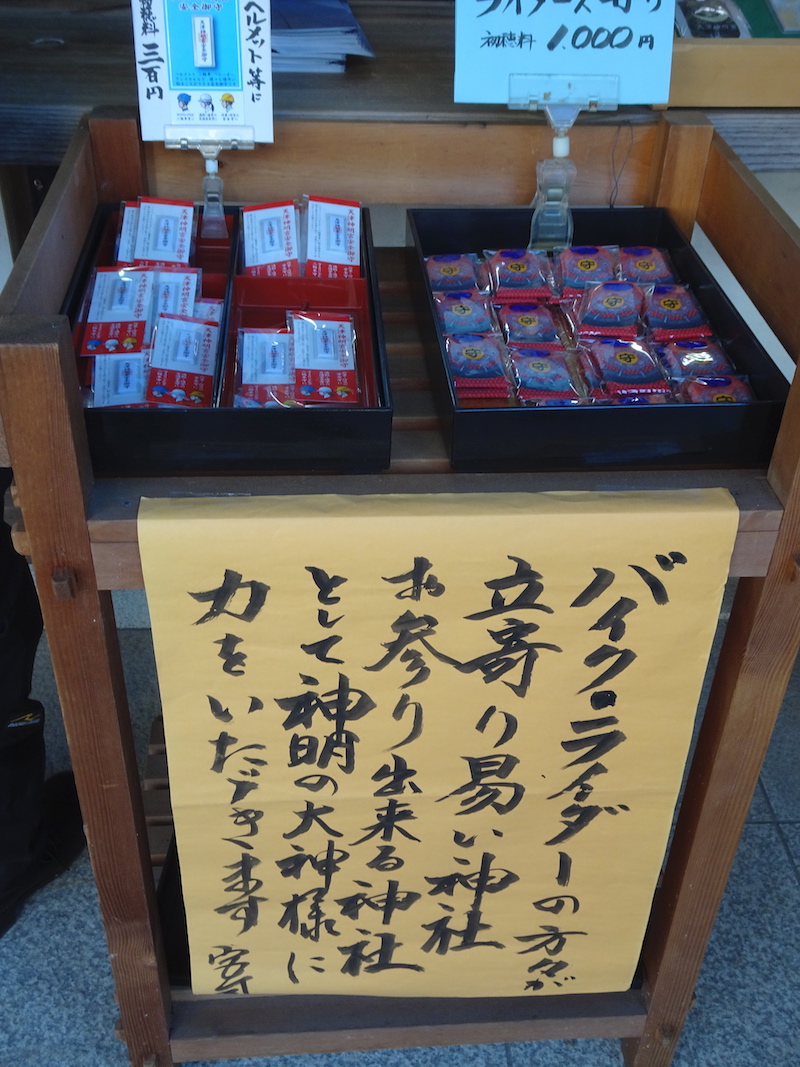 安全御守
ヘルメット等に
三百円
初穂料 1,000円
天津神明宮安全御守
守
バイク・ライダーの方々が
立寄り易い神社
お参り出来る神社
として神明の大神様に
力をいただきます